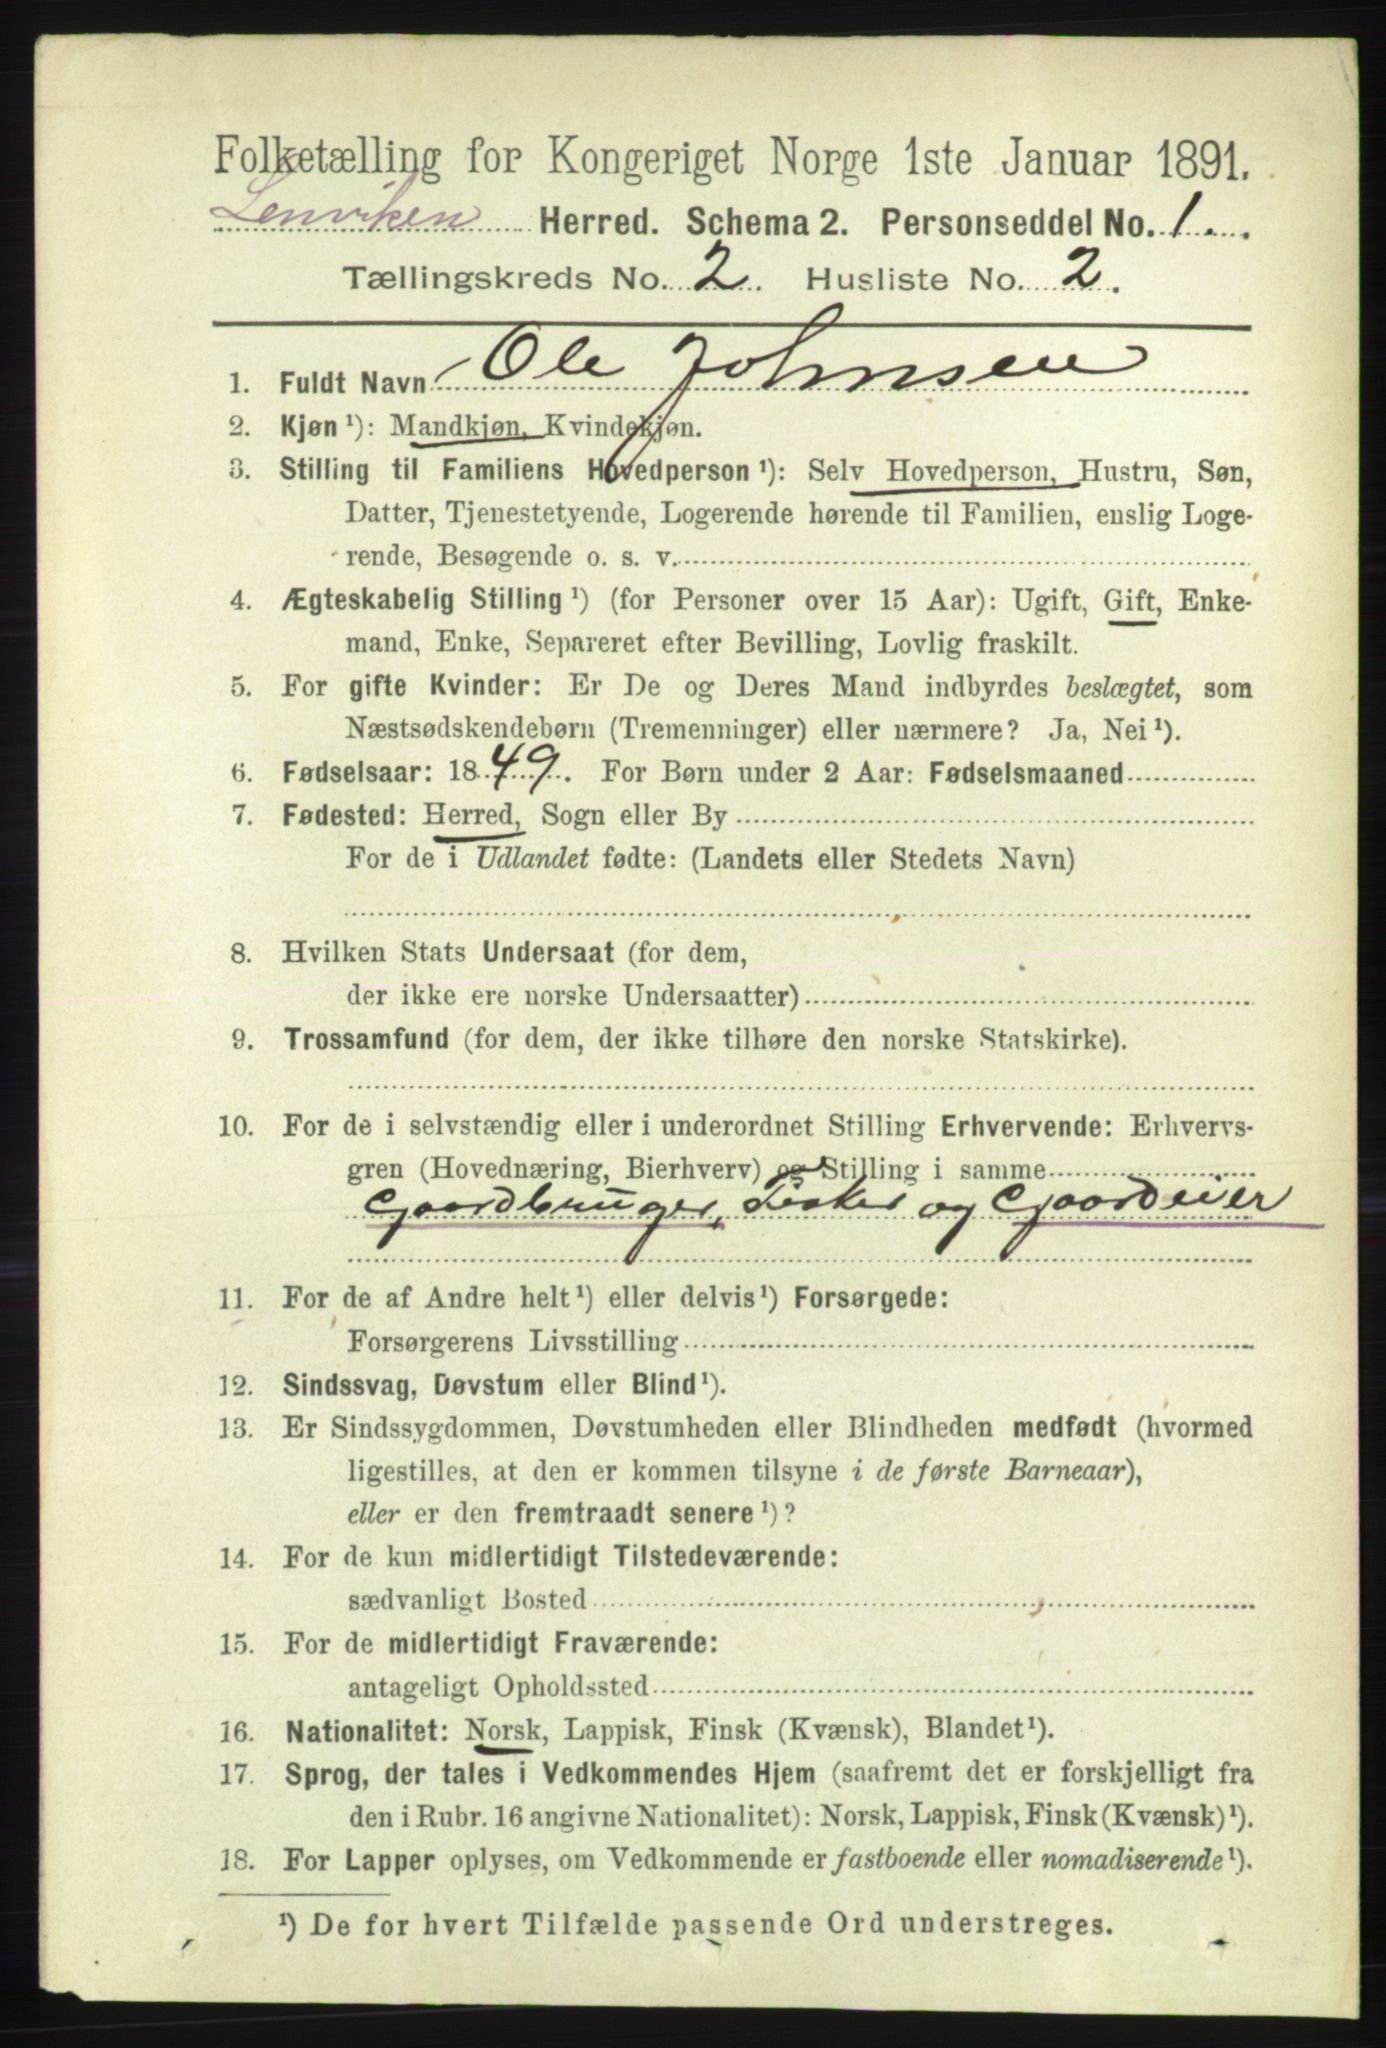 Folketælling for Kongeriget Norge 1ste Januar 1891.
Lenviken Herred. Schema 2. Personseddel No. 1.
Tællingskreds No. 2. Husliste No. 2.
1. Fuldt Navn Ole Johnsen
2. Kjøn ¹): Mandkjøn, Kvindekjøn.
3. Stilling til Familiens Hovedperson ¹): Selv Hovedperson, Hustru, Søn,
Datter, Tjenestetyende, Logerende hørende til Familien, enslig Loge-
rende, Besøgende o. s. v.
4. Ægteskabelig Stilling ¹) (for Personer over 15 Aar): Ugift, Gift, Enke-
mand, Enke, Separeret efter Bevilling, Lovlig fraskilt.
5. For gifte Kvinder: Er De og Deres Mand indbyrdes beslægtet, som
Næstsødskendebørn (Tremenninger) eller nærmere? Ja, Nei ¹).
6. Fødselsaar: 1849. For Børn under 2 Aar: Fødselsmaaned
7. Fødested: Herred, Sogn eller By
For de i Udlandet fødte: (Landets eller Stedets Navn)
8. Hvilken Stats Undersaat (for dem,
der ikke ere norske Undersaatter)
9. Trossamfund (for dem, der ikke tilhøre den norske Statskirke).
10. For de i selvstændig eller i underordnet Stilling Erhvervende: Erhvervs-
gren (Hovednæring, Bierhverv) og Stilling i samme
Gaardbruger, Fisker og Gaardeier
11. For de af Andre helt ¹) eller delvis ¹) Forsørgede:
Forsørgerens Livsstilling
12. Sindssvag, Døvstum eller Blind ¹).
13. Er Sindssygdommen, Døvstumheden eller Blindheden medfødt (hvormed
ligestilles, at den er kommen tilsyne i de første Barneaar),
eller er den fremtraadt senere ¹)?
14. For de kun midlertidigt Tilstedeværende:
sædvanligt Bosted
15. For de midlertidigt Fraværende:
antageligt Opholdssted
16. Nationalitet: Norsk, Lappisk, Finsk (Kvænsk), Blandet ¹).
17. Sprog, der tales i Vedkommendes Hjem (saafremt det er forskjelligt fra
den i Rubr. 16 angivne Nationalitet): Norsk, Lappisk, Finsk (Kvænsk) ¹).
18. For Lapper oplyses, om Vedkommende er fastboende eller nomadiserende ¹).
¹) De for hvert Tilfælde passende Ord understreges.